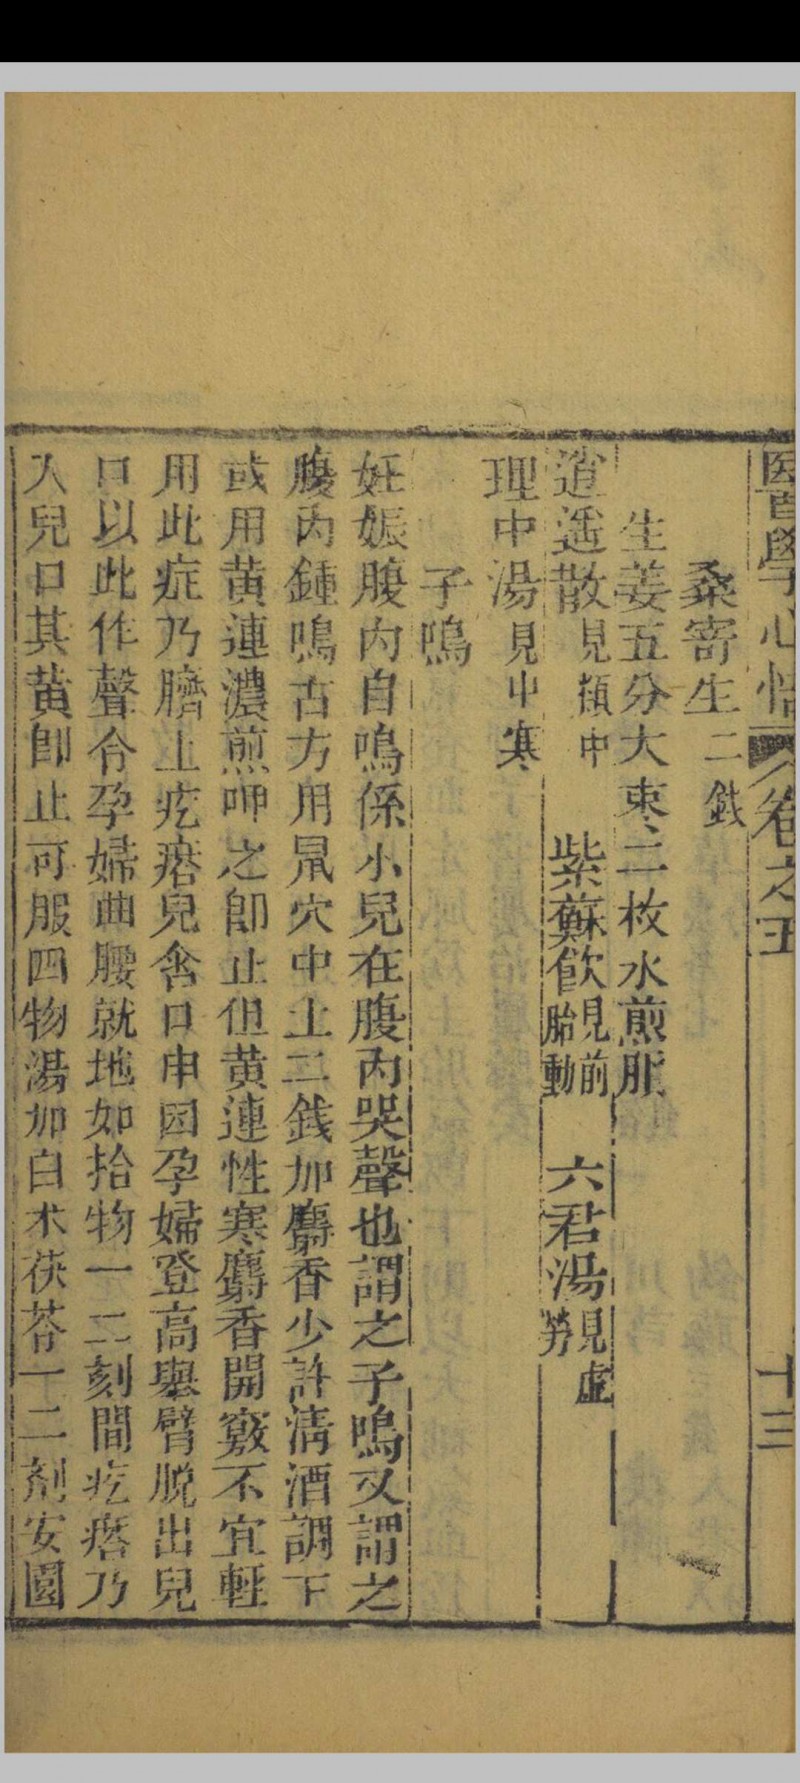 醫學心悟　卷之五　十三
桑寄生二錢
生姜五分大棗二枚水煎服
逍遥散見類中　紫蘇飲見前胎動　六君湯見虛勞
理中湯見中寒
子鳴
妊娠腹内自鳴係小兒在腹内哭聲也謂之子鳴又謂之
腹内鍾鳴古方用鼠穴中土二錢加麝香少許清酒調下
或用黄連濃煎呷之卽止但黄連性寒麝香開竅不宜輕
用此症乃臍上疙瘩兒含口中因孕婦登高舉臂脱出兒
口以此作聲令孕婦曲腰就地如拾物一二刻間疙瘩乃
入兒口其鳴卽止可服四物湯加白术茯苓一二劑安固